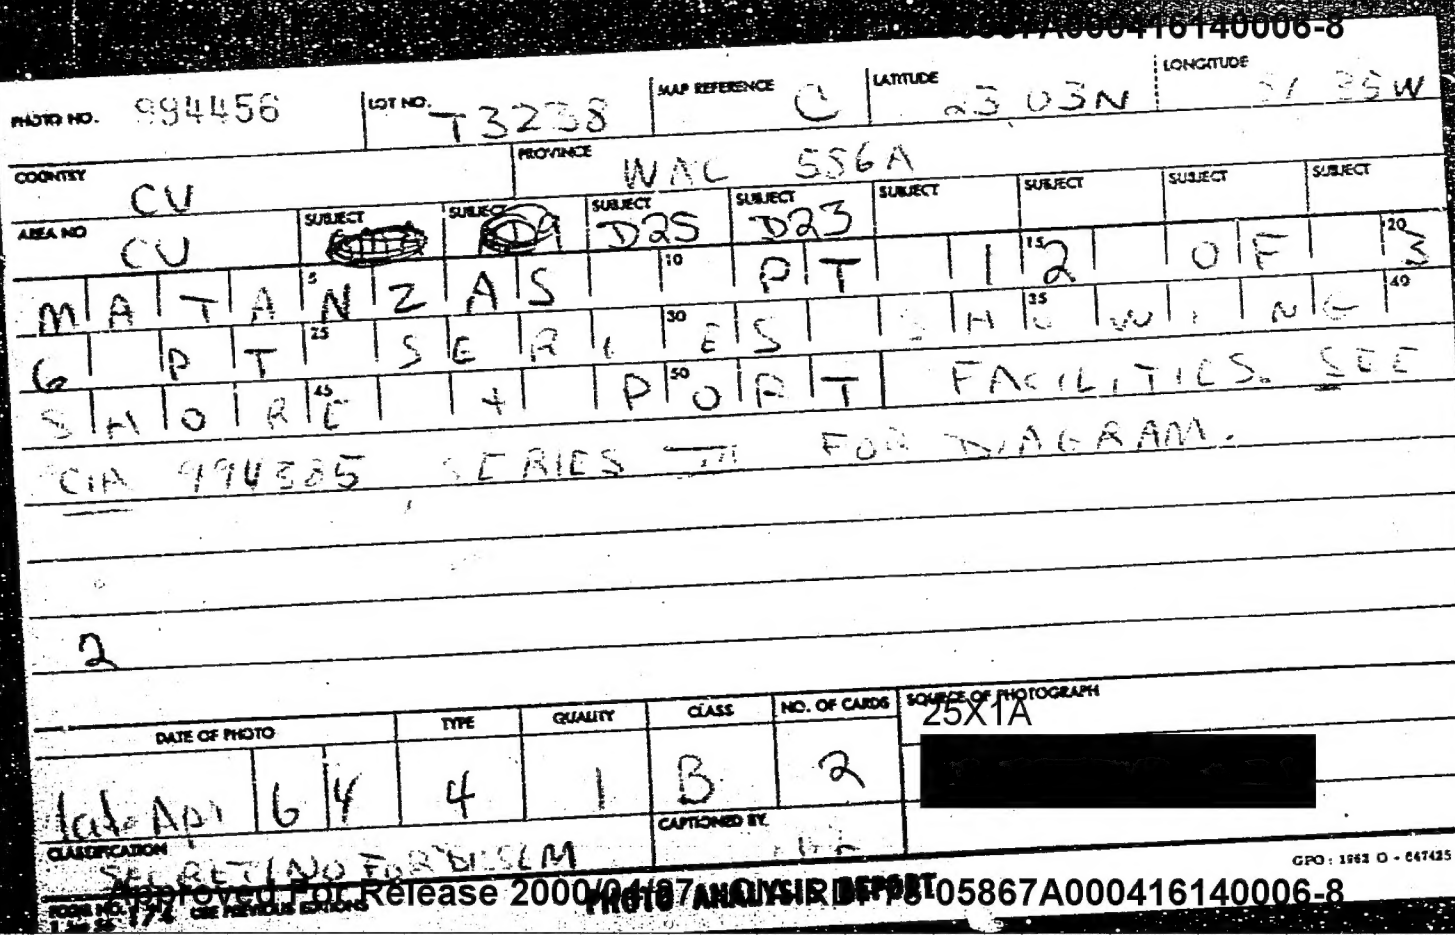 05867A000416140006-8
PHOTO NO. 994456 LOT NO. T3238 MAP REFERENCE C LATITUDE 23 03N LONGITUDE 81 35W
COUNTRY CU PROVINCE WAC 586A
AREA NO CU SUBJECT SUBJECT SUBJECT D25 SUBJECT D23 SUBJECT SUBJECT SUBJECT SUBJECT
MATA 5 NZAS 10 PT 1 15 2 OF 20 3
6 PT 25 SERI 30 ES SHO 35 WING 40
SHOR 45 E + P 50 ORT FACILITIES. SEE
CIA SERIES III FOR DIAGRAM.
2
DATE OF PHOTO TYPE QUALITY CLASS NO. OF CARDS SOURCE OF PHOTOGRAPH
25X1A
late Apr 64 4 1 B 2
CLASSIFICATION CAPTIONED BY
SECRET/NO FOR DISSEM
GPO : 1962 O - 647425
Approved For Release 2000/04/07 : CIA-RDP78-05867A000416140006-8
FORM NO. 174 USE PREVIOUS EDITIONS PHOTO ANALYSIS REPORT